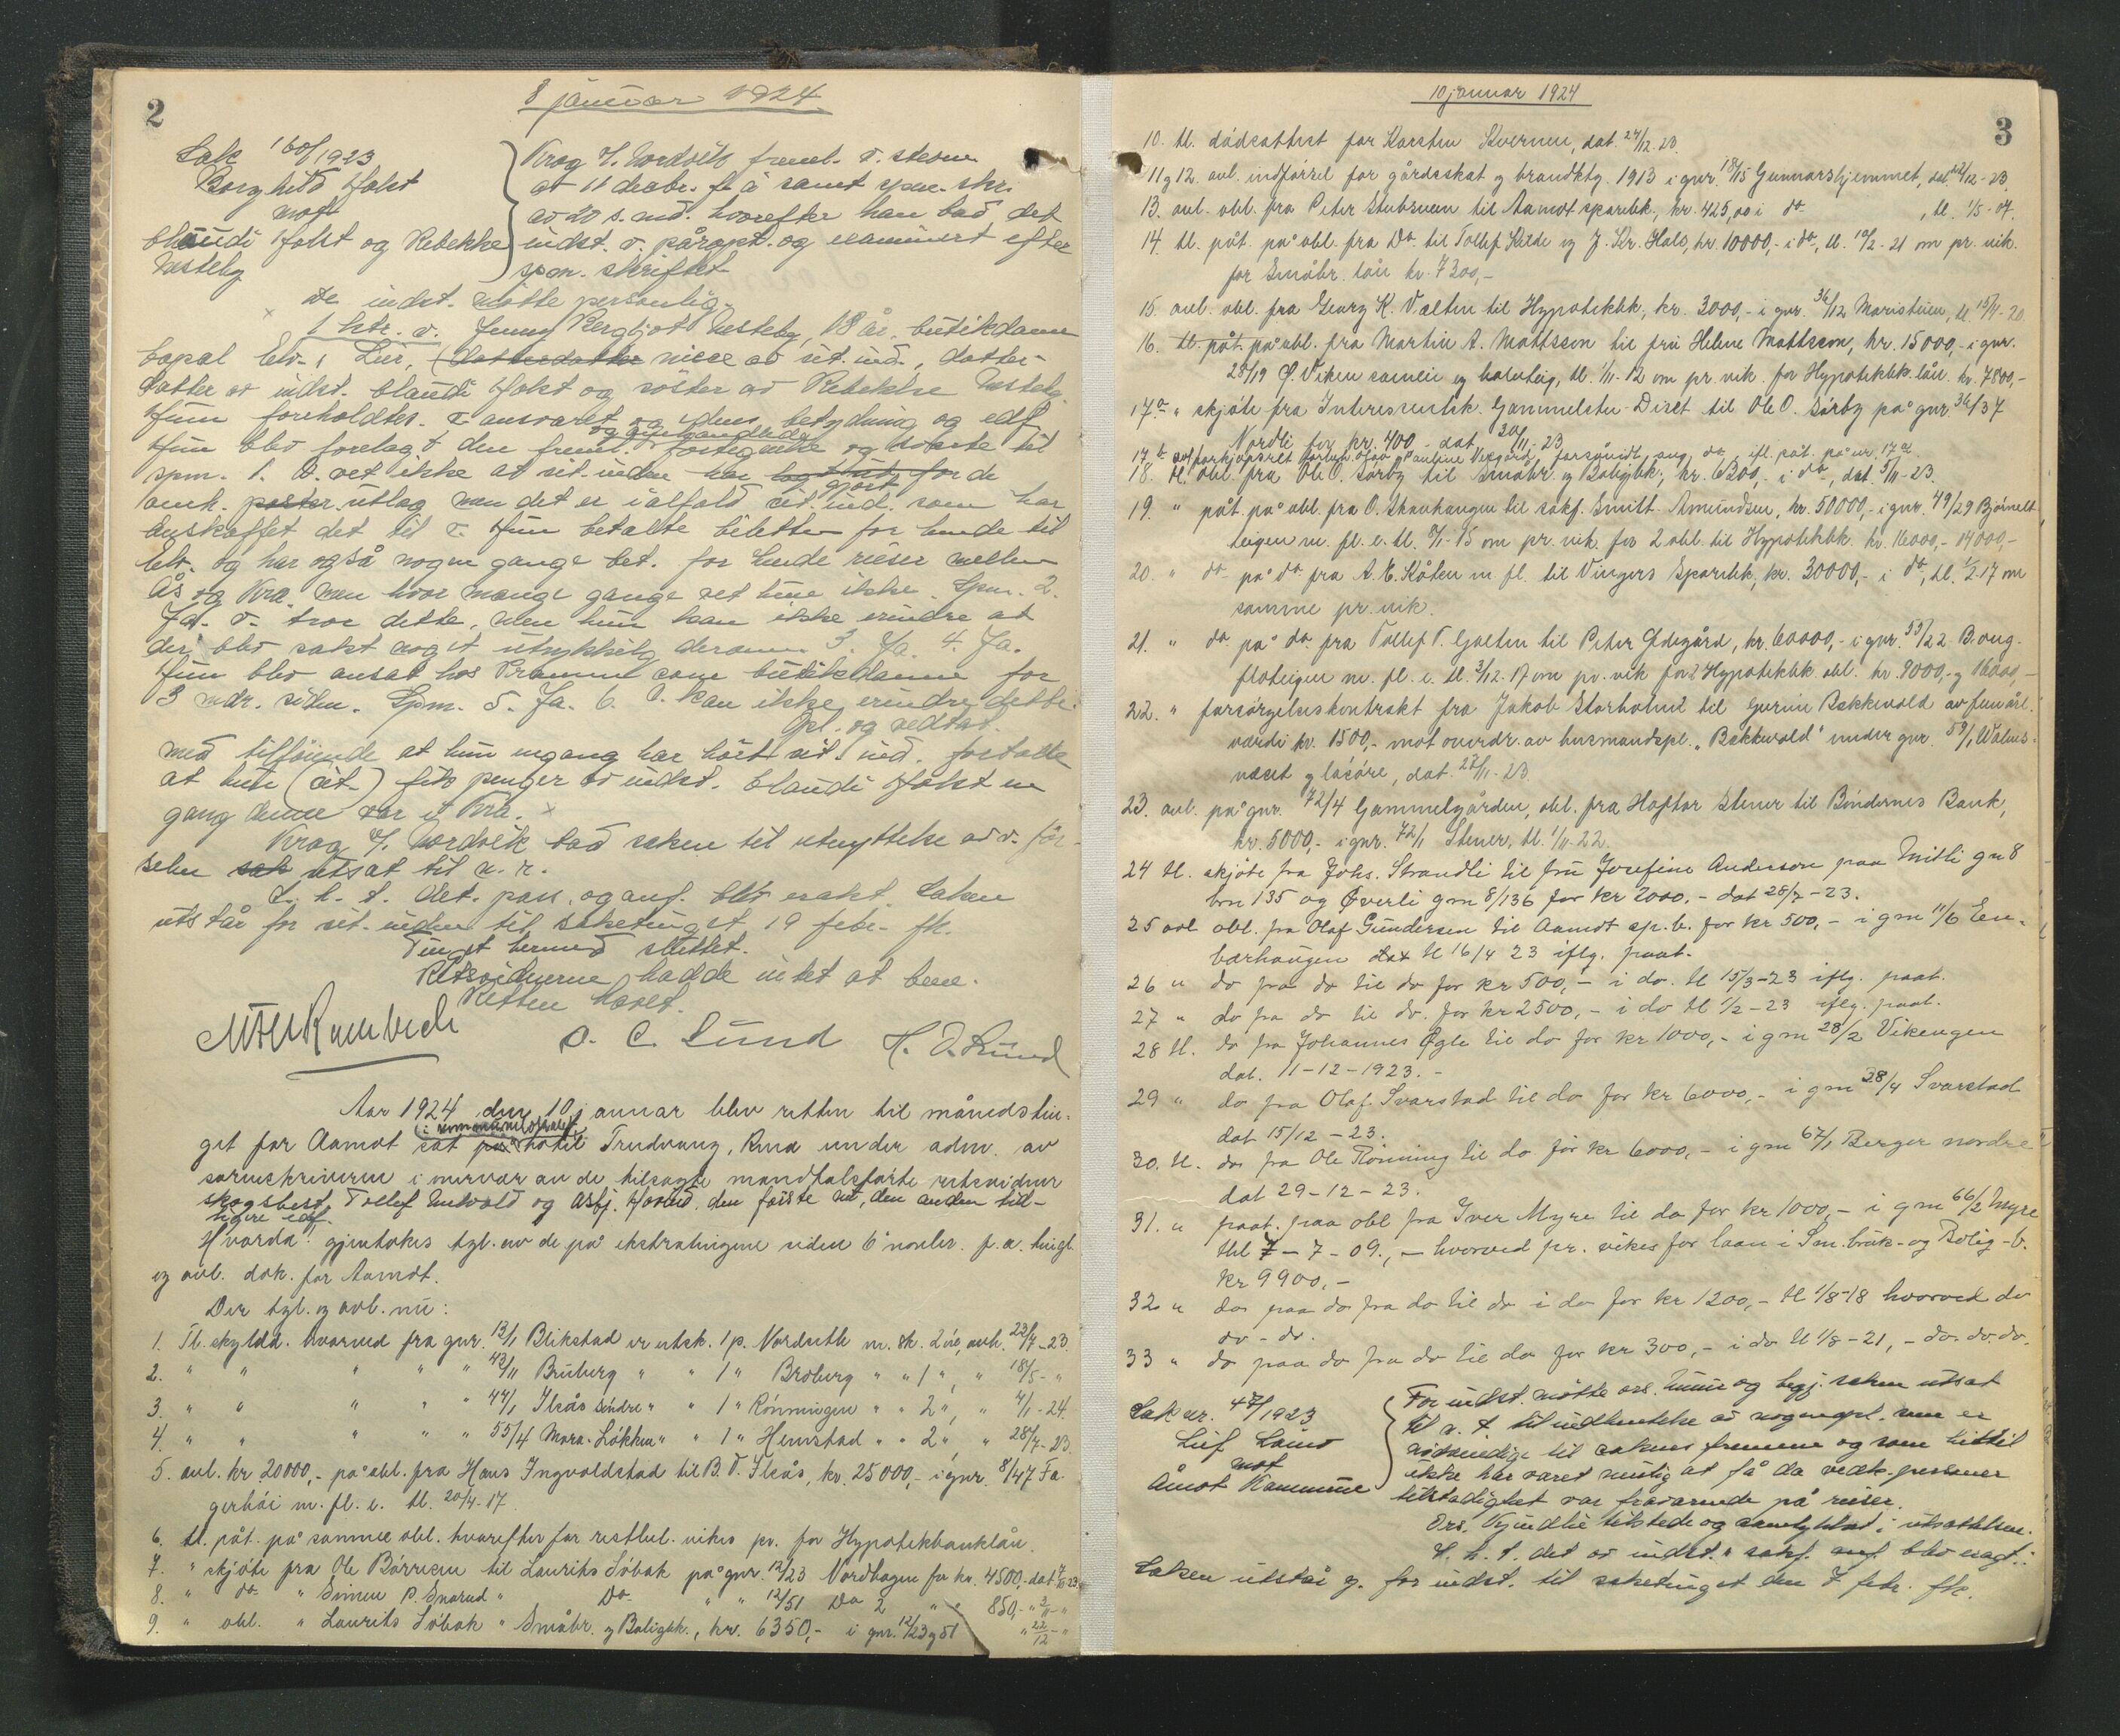 2
8 januar 1924
Sak 160/1923
Borghild Holst
mot
Claudi Holst og Rebekke
Nesteby
Krag v/ Nordvik freml. v. stevn.
av 11 decbr. f. å samt spm. skr.
av 20 s. md. hvorefter han bad det
indst. v. påropt. og examinert efter
spm. skriftet.
De indst. møtte personlig.
1 ste. v. Jenny Bergljot Nesteby, 18 år, butikdame
bopæl Elv., niece av sit. ind., datter-
datter av indst. Claudi Holst og søster av Rebekke Nesteby.
Hun foreholdtes v. ansvaret og edens betydning og edf.
Hun blev forelagt den freml. og svarte til
spm. 1. V. vet ikke at sit. inden har gjort de
omh. utlæg men det er ialfald sit. ind. som har
anskaffet det til v. Hun betalte biletter for hende til
Elv. og har også nogen gange bet. for hende reiser mellem
Ås og Kra. men hvor mange gange vet hun ikke. Spm. 2.
Ja. v. tror dette, men hun kan ikke erindre at
der blev sakt noget utrykkelig derom. 3. Ja. 4. Ja.
Hun blev ansat hos som butikdame for
3 mdr. siden. Spm. 5. Ja. 6. V. kan ikke erindre dette.
Opl. og vedtat.
med tilføiende at hun engang har hørt sit. ind. fortalte
at hun (sit.) fik penger av indst. Claudi Holst en
gang denne var i Kra.
Krag v/ Nordvik bad saken til utnyttelse av v. før-
selen utsat til n. r.
S. h. t. det. pass. og anf. blev avsakt. Saken
utstår for sit. inden til saketinget 19 febr. fk.
Tinget hermed sluttet.
Retsvidnerne hadde intet at bem.
Retten hævet.
O. C. Lund H. O. Lund
Aar 1924 den 10 januar blev retten til månedstin-
get for Aamot sat i kommunelokalet hotel Trudvang, Rena under adm. av
sorenskriveren i nærvær av de tilsagte mandtalsførte retsvidner
skogsbest. Tollef Untvold og Asbj. Hovind, den første nu, den anden tid-
ligere edf.
Hvorda: gjentokes tgl. av de på ekstratingene siden 6 novbr. f. a. tingl.
og avl. dok. for Aamot.
Der tgl. og avl. nu:
1. Tl. skyldd. hvorved fra gnr. 13/1 Blikstad er utsk. 1 p. Nordseth m. sk. 2 øre, avh. 23/7-23.
2. " " " " " 43/11 Bruberg " " 1 " Broberg " " 1 ", " 18/5- "
3. " " " " " 44/1 Ilsås søndre " " 1 " Rønningen " " 2 ", " 4/1-24.
4. " " " " " 55/4 Mora-Løkken " " 1 " Hemstad " " 2 ", " 28/7-23.
5. avl. kr. 20000,- på obl. fra Hans Ingvaldstad til B. O. Ilsås, kr. 25000,- i gnr. 8/47 Fa-
gerhøi m. fl. e. tl. 20/4-17.
6. tl. påt. på samme obl. hvorefter for restbel. vikes pr. for Hypotekbanklån.
7. " skjøte fra Ole Børresen til Laurits Søbak på gnr. 12/23 Nordhagen for kr. 4500,- dat. 7/11-23
8. " do " Simen P. Snarud " Do " " 12/51 Do 2 " " 850,- " 3/11- "
9. " obl. " Laurits Søbak " Småbr. og Boligbk., kr. 6350,- i gnr. 12/23 og 51 " 22/12- "
3
10 januar 1924
10. tl. dødsattest for Karsten Kvernen, dat. 24/12.23.
11 og 12. avl. indførsel for gårdsskat og brandktg. 1913 i gnr. 18/15 Gunnarshjemmet, dat. 22/12-23.
13. avl. obl. fra Peter Stubruen til Aamot sparebk., kr. 425,00 i do , tl. 1/5-07.
14. tl. påt. på obl. fra Do til Tollef Kilde og J. Kr. Halo, kr. 10000,- i do, tl. 10/2-21 om pr. vik.
for Småbr. lån kr. 7300,-
15. avl. obl. fra Georg K. Valten til Hypotekbk., kr. 3000,- i gnr. 36/12 Maristuen, tl. 15/4-20.
16. tl. påt. på obl. fra Martin A. Mattsson til fru Helene Mattsson, kr. 15000,- i gnr.
28/19 Ø. Viken sameie og halvteig, tl. 1/11-12 om pr. vik. for Hypotekbk. lån kr. 7800,-
17.a " skjøte fra Interessentsk. Gammelsten-Diset til Ole O. Sørby på gnr. 36/37
Nordli for kr. 400 - dat. 20/11-23
17 b forsåvidt ang. do ifl. påt. på nr. 17 a.
18. tl. obl. fra Ole O. Sørby til Småbr. og Boligbk., kr. 6300,- i do, dat. 5/11-23.
19. " påt. på obl. fra O. Skavhaugen til sakf. Smitt-Amundsen, kr. 50000,- i gnr. 49/29 Bjørnelt-
teigen m. fl. e. tl. 9/1-15 om pr. vik. for 2 obl. til Hypotekbk. kr. 16000,- 14000,-
20. " do på do fra A. E. Kølen m fl. til Vingers Sparebk., kr. 30000,- i do, tl. 1/2-17 om
samme pr. vik.
21. " do på do fra Tollef T. Galten til Peter Ødegård, kr. 60000,- i gnr. 53/22 Boug-
floteigen m. fl. e. tl. 3/12-17 om pr. vik. for 2 Hypotekbk. obl. kr. 8000,- og 16000,-
22. " forsørgelseskontrakt fra Jakob Storholmt til Gurine Bækkevold av femårl.
værdi kr. 1500,- mot overdr. av husmandspl. "Bækkevold" under gnr. 59/1 Walms-
næset og løsøre, dat. 27/11-23.
23. avl. på gnr. 72/4 Gammelgården, obl. fra Haftor Stener til Bøndernes Bank,
kr. 5000,- i gnr. 72/1 Stener, tl. 1/11-22.
24 tl. skjøte fra Johs. Strandli til fru Josefine Anderson paa Mitli gn 8
brn 135 og Øverli gnr 8/136 for kr 2000.- dat 28/7-23.
25 avl obl. fra Olaf Gundersen til Aamot sp. b. for kr 500,- i gnr 11/6 Een-
bærhaugen tl 16/4 23 iflg. paat.
26 " do fra do til do for kr 500,- i do. tl 15/3-23 iflg. paat.
27 " do fra do til do. for kr 2500,- i do tl 1/2-23 iflg. paat.
28 tl. do fra Johannes Øgle til do for kr 1000,- i gnr 28/2 Vikengen
dat. 11-12-1923.-
29 " do fra Olaf Svarstad til do for kr 6000,- i gnr 28/4 Svarstad
dat 15/12-23.
30. tl. do fra Ole Rønning til do for kr 6000,- i gnr 67/1 Berger nordre
dat 29-12-23.
31. " paat. paa obl fra Iver Myre til do for kr 1000,- i gnr 66/2 Myre
tbl 7-7-09.,- hvorved pr. vikes for laan i Sm.bruk- og Bolig-b.
kr 9900,-
32 " do paa do fra do til do i do for kr 1200,- tl 1/8-18 hvorved do
do-do.
33 " do paa do fra do til do for kr 300,- i do tl 1/8-21,- do. do do.
Sak nr. 47/1923
mot
Åmot Kommune
For indst. møtte ors. og begj. saken utsat
til n. t. til indhentelse av nogen opl. som er
nødvendige til sakens fremme og som hittil
ikke har været mulig at få da vedk. personer
stadighet var fraværende på reiser.
Ors. Kjendlie tilstede og samtykket i utsættelsen.
S. h. t. det av indst.s sakf. anf. blev eragt.:
Saken utstår g. for indst. til saketinget den 7 febr. fk.